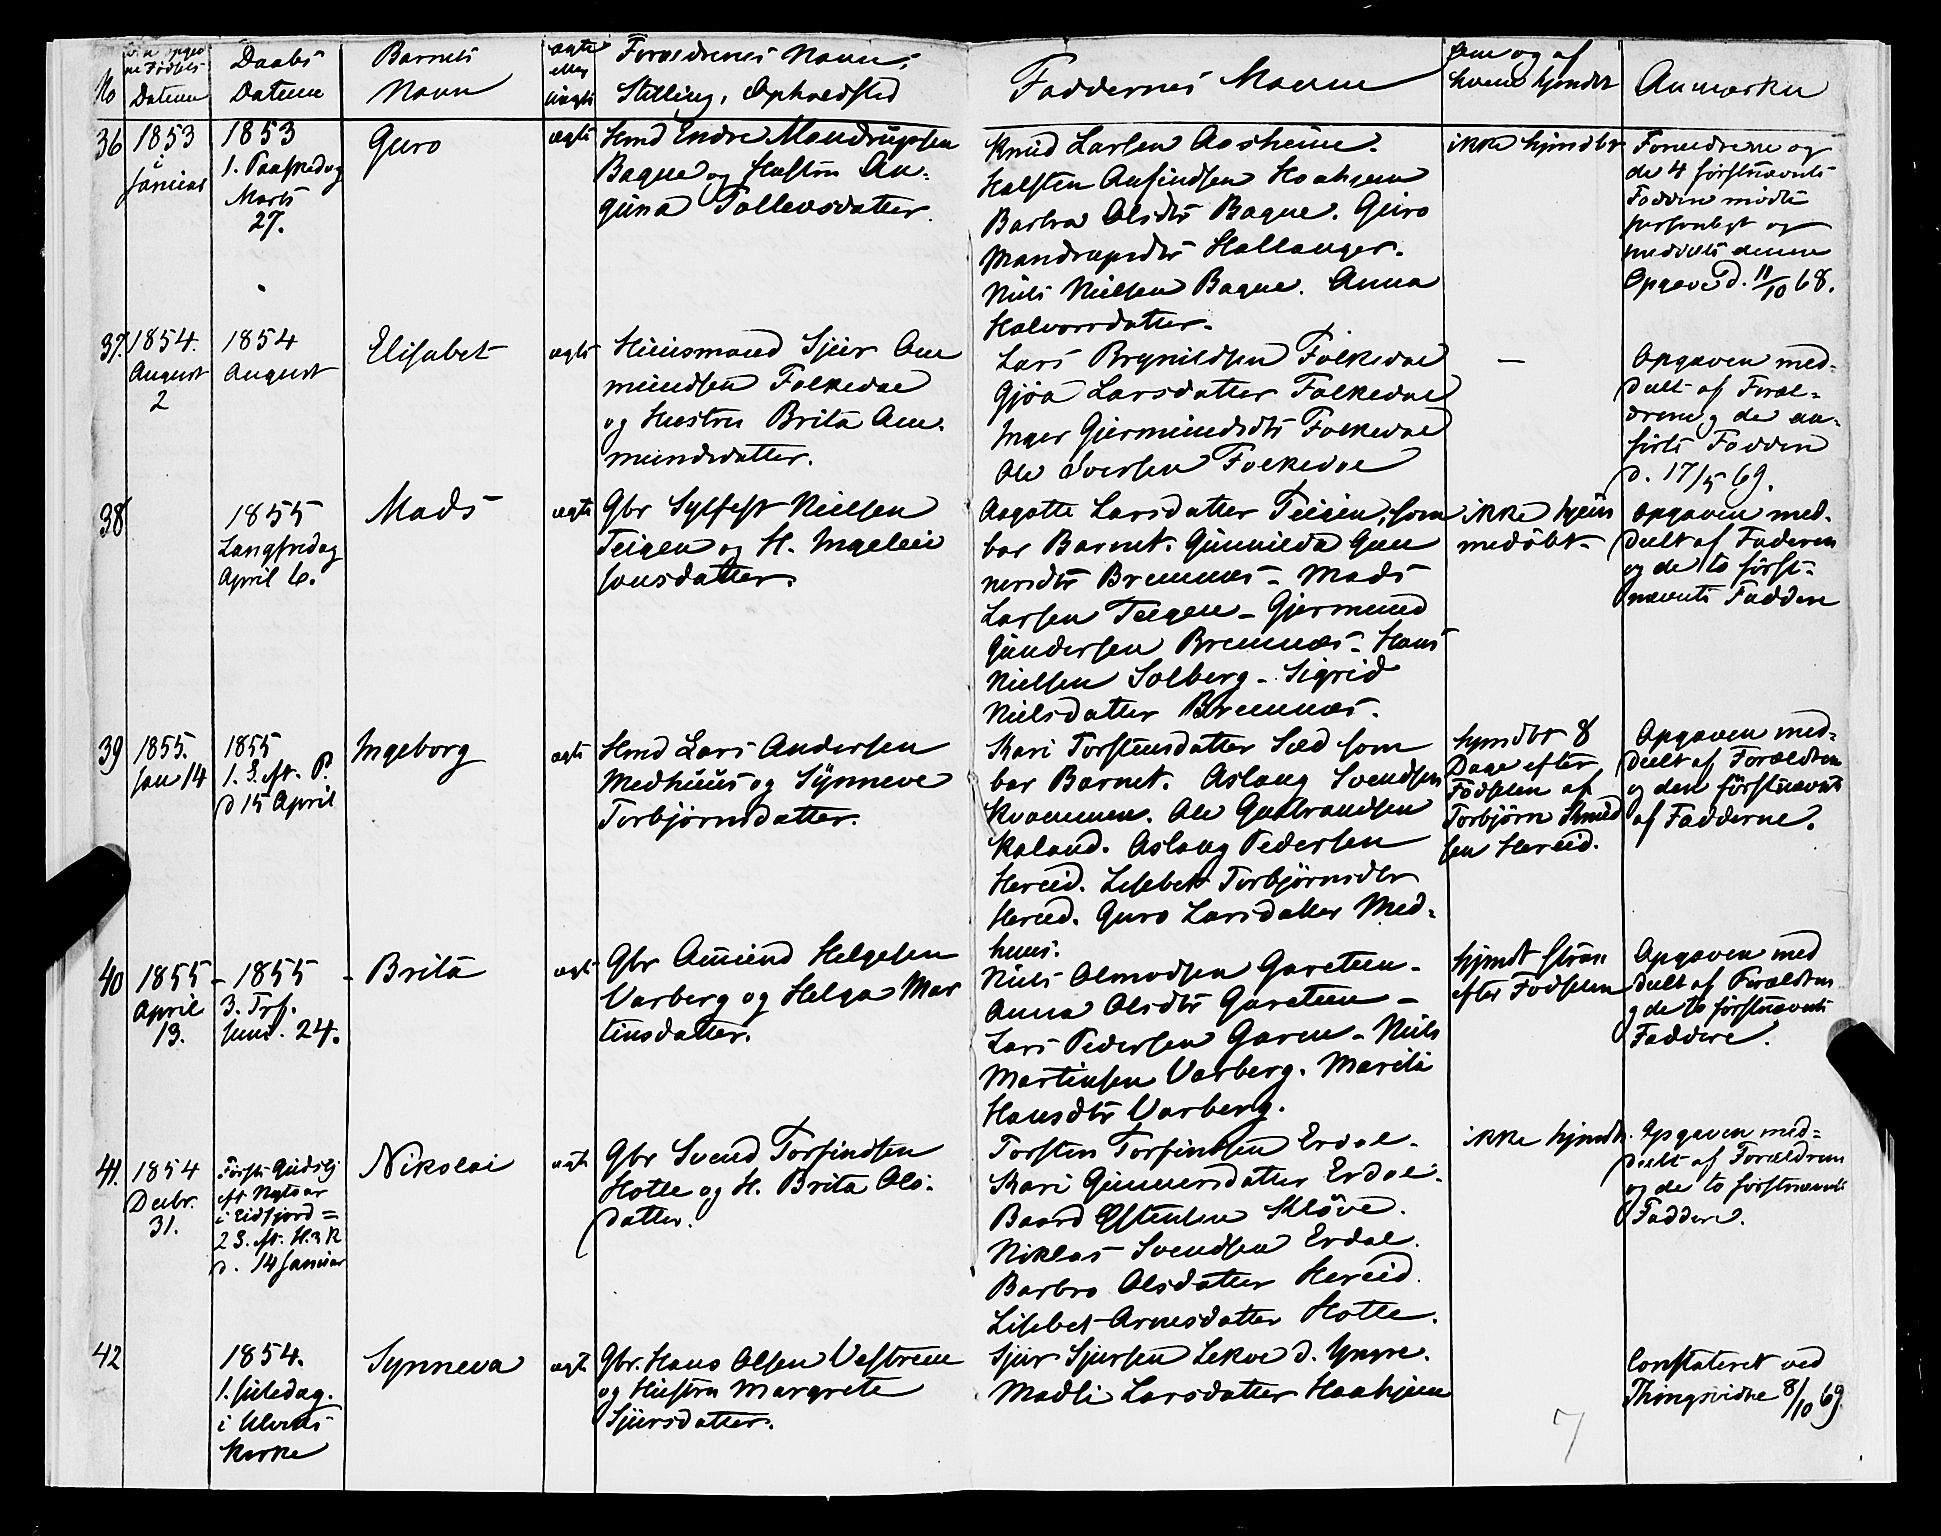 No
Datum
Daabs
Datum
Barnets
Navn
ægte
eller
uægte
Forældrenes Navn,
Stilling, Opholdsted
Faddernes Navne
om og af
hvem hjemdøbt
Anmærkn
36
1853
i
Januar
1853
1. Paaskedag
Marts
27.
Guro
ægte
Hmd Endre Mandrupsen
Bague og Hustru An-
guna Tollevsdatter.
Knud Larsen Aasheim.
Halsten Anfindsen Haaheim
Barbra Olsdtr Bague. Guro
Mandrupsdtr Hallanger.
Niels Nielsen Bague. Anna
Halvorsdatter.
ikke hjemdbt
Forældrene og
de 4 förstnævnte
Faddere mödte
personligt og
meddelte denne
Opgave d. 11/10 68.
37.
1854.
August
2
1854
August
Elisabet
ægte
Huusmand Sjur Am
mundsen Folkedae
og Hustru Brita Am-
mundsdatter.
Lars Brynildsen Folkedae
Gjöa Larsdatter Folkedae
Inger Gjermundsdtr Folkedae
Ole Iversen Folkedae
—
Opgaven med-
delt af Foræl-
drene og de an-
förte Faddere
d. 17/5 69.
38
1855
Langfredag
April 6.
Mads
ægte
Gbr Sylfest Nielsen
Teigen og H. Ingeleiv
Jonsdatter.
Aagotte Larsdatter Teigen, som
bar Barnet. Gunnilda Gun
nersdtr Bremnes - Mads
Larsen Teigen - Gjermund
Gundersen Bremnæs - Hans
Nielsen Solberg - Sigrid
Nielsdatter Bremnæs.
ikke hjem
medöbt-
Opgaven med-
delt af Faderen
og de to först-
nævnte Faddere
39
1855.
Jan 14
1855
1. S. eft. P.
d 15 April
Ingeborg
ægte
Hmd Lars Andersen
Medhuus og Synneve
Torbjörnsdatter.
Kari Torstensdatter Sæd som
bar Barnet. Aslaug Svendsen
Kvammen. Ole Gulbrandsen
Kaland. Aslaug Pedersen
Hereid. Lisbet Torbjörnsdtr
Hereid. Guro Larsdatter Med-
huus.
hjemdbt 8
Dage efter
Födselen af
Torbjörn Amund
sen Hereid.
Opgaven med-
deelt af Forældrene
og den förstnævnte
af Fadderne.
40
1855
April
13.
- 1855 -
3. Trf.
Juni. 24.
Brita
ægte
Gbr Amund Helgesen
Varberg og Helga Mar
tinsdatter.
Niels Olmodsen Garetun -
Anna Olsdtr Garetun -
Lars Pedersen Garen - Niels
Martinsen Varberg. Marita
Hansdtr Varberg.
hjemdt strax
efter Födselen
Opgaven med
delt af Forældrene
og de to förstnævnte
Faddere.
41.
1854
Decbr.
31.
Förste Gudstj
eft. Nytaar
i Eidfjord =
2 S. eft. H. 3 K
d. 14 Januar
Nikolai
ægte
Gbr Svend Torfindsen
Hotle og H. Brita Ols-
datter.
Torsten Torfindsen Erdal.
Kari Gunnersdatter Erdal.
Baard Eistensen Klöve.
Niklas Svendsen Erdal.
Barbro Olsdatter Hereid.
Lisbet Arnesdatter Hotle.
ikke hjemdt.
Opgaven med-
delt af Forældrene
og de to förstnævnte
Faddere.
42
1854.
1. Juledag.
i Ulviks
Kirke
Synneva
ægte
Gbr. Hans Olsen Vestrem
og Hustru Margrete
Sjursdatter.
Sjur Sjursen Lekve d. Yngre.
Madli Larsdatter Haaheim
Constateret ved
Thingsvidne 8/10 69.
7